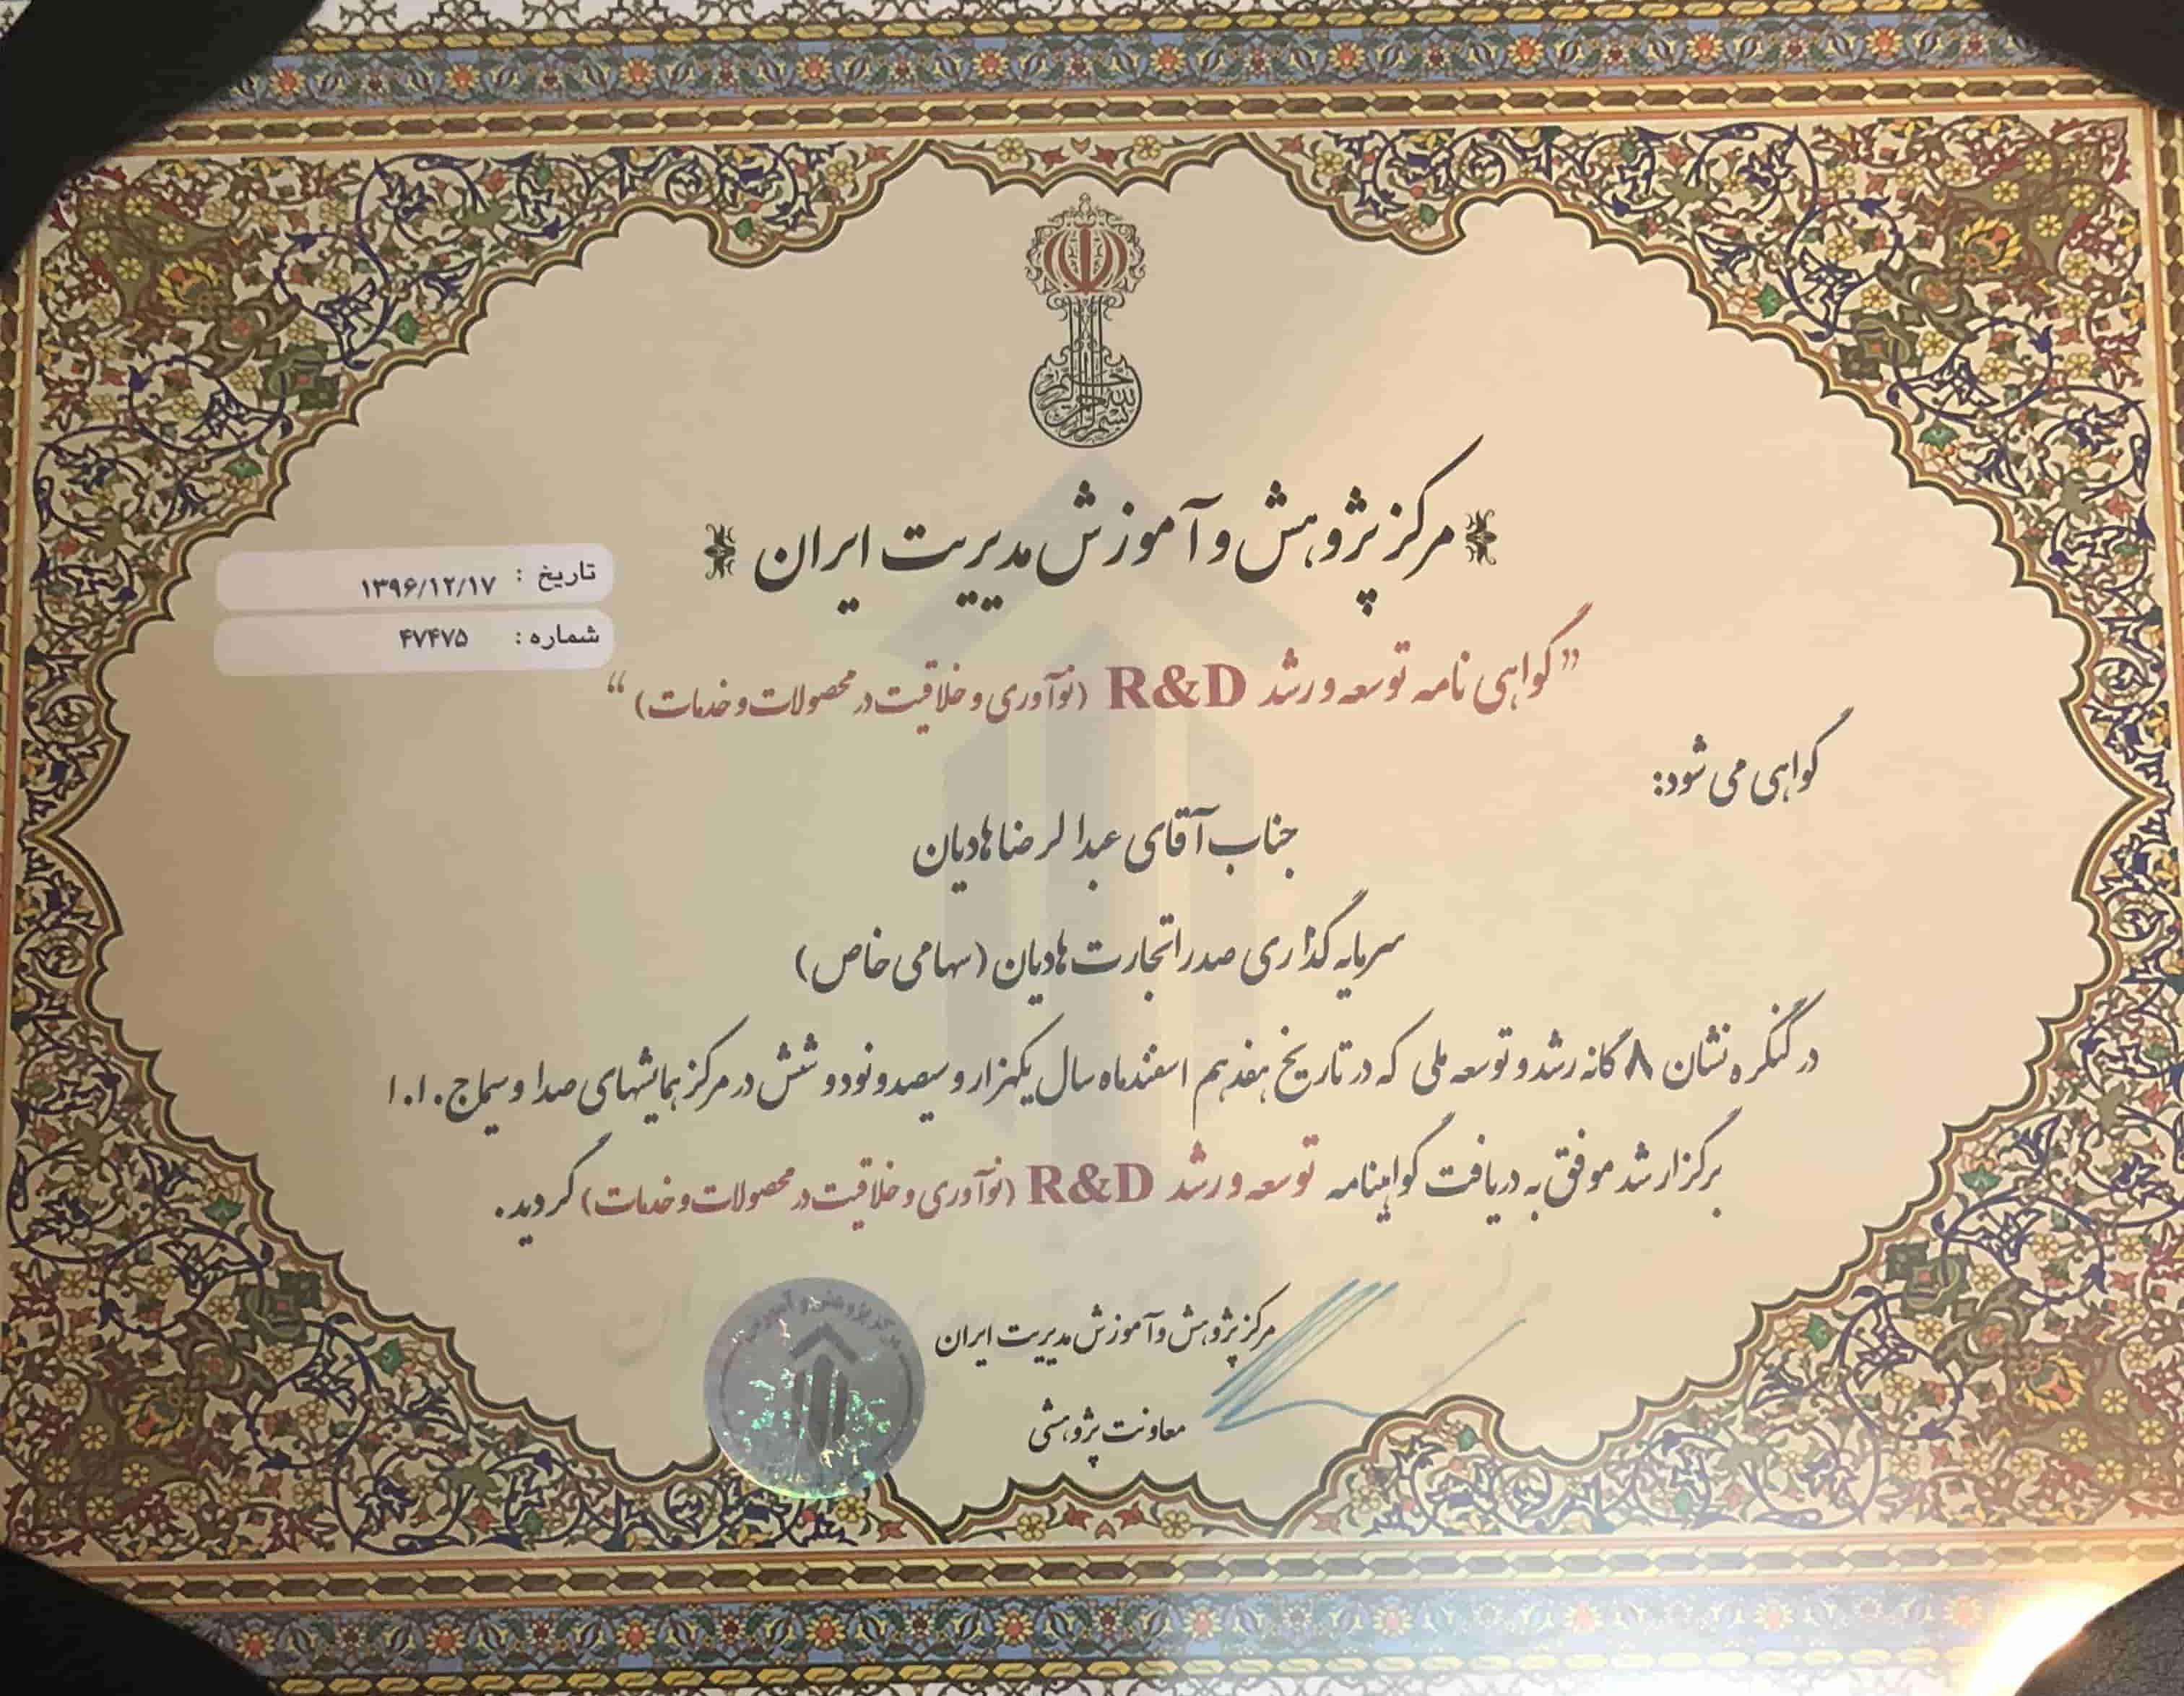 بسم الله الرحمن الرحیم
مرکز پژوهش و آموزش مدیریت ایران
تاریخ : ۱۳۹۶/۱۲/۱۷
شماره : ۴۷۴۷۵
”گواهی نامه توسعه و رشد R&D (نوآوری و خلاقیت در محصولات و خدمات)“
گواهی می شود:
جناب آقای عبدالرضا هادیان
سرمایه گذاری صدرا تجارت هادیان (سهامی خاص)
در کنگره نشان ۸ گانه رشد و توسعه ملی که در تاریخ هفدهم اسفندماه سال یکهزار و سیصد و نود و شش در مرکز همایشهای صدا و سیما ج.ا.ا
برگزار شد موفق به دریافت گواهینامه توسعه و رشد R&D (نوآوری و خلاقیت در محصولات و خدمات) گردید.
مرکز پژوهش و آموزش مدیریت ایران
معاونت پژوهشی
مرکز پژوهش و آموزش